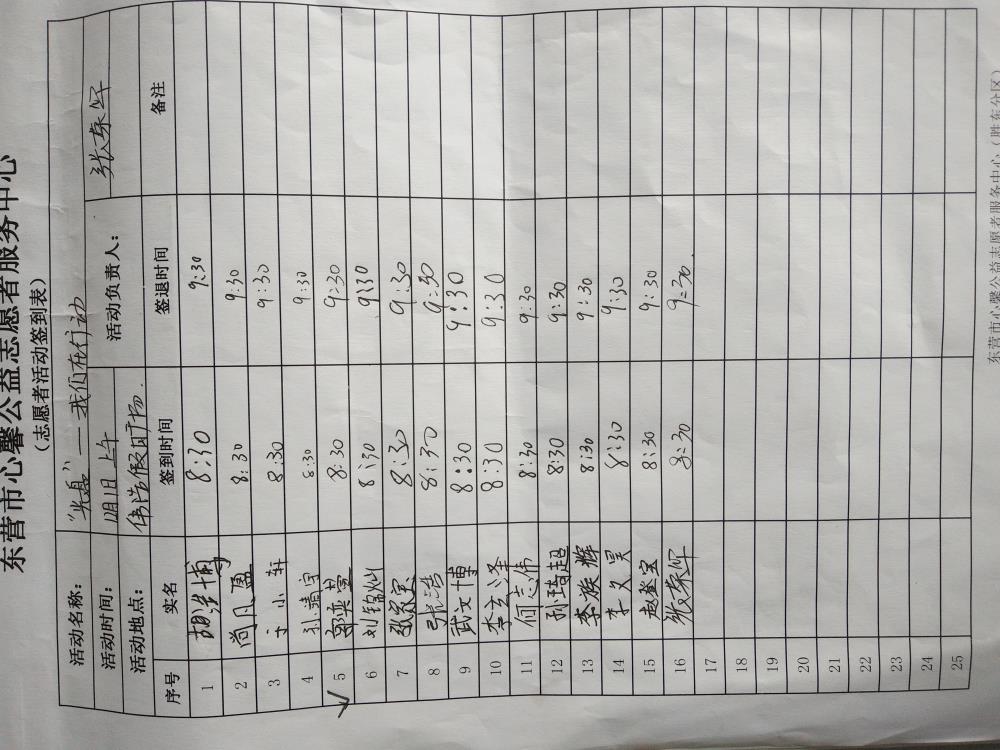 东营市心馨公益志愿者服务中心
（志愿者活动签到表）
活动名称： “光盘”——我们在行动
活动时间： 12月1日上午 活动负责人： 张春军
活动地点： 伟浩假日广场
序号 实名 签到时间 签退时间 备注
1 胡洪博 8:30 9:30
2 尚凡盈 8:30 9:30
3 于小轩 8:30 9:30
4 孙靖宇 8:30 9:30
5 郭奕萱 8:30 9:30
6 刘铭灿 8:30 9:30
7 张家宝 8:30 9:30
8 张浩 8:30 9:30
9 武文博 8:30 9:30
10 李玄泽 8:30 9:30
11 何志伟 8:30 9:30
12 孙琦超 8:30 9:30
13 李族辉 8:30 9:30
14 李文昊 8:30 9:30
15 赵登宝 8:30 9:30
16 张春军 8:30 9:30
17
18
19
20
21
22
23
24
25
东营市心馨公益志愿者服务中心（胜东分区）